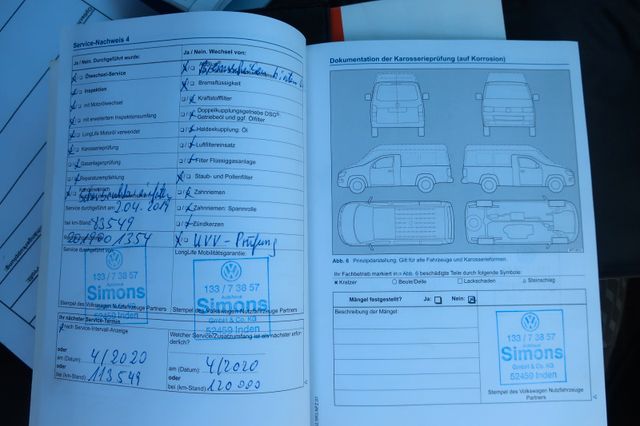 Service-Nachweis 4
Ja / Nein. Durchgeführt wurde:
Ölwechsel-Service
Inspektion
mit Motorölwechsel
mit erweitertem Inspektionsumfang
LongLife Motoröl verwendet
Karosserieprüfung
Gasanlagenprüfung
Reparaturempfehlung
Service durchgeführt am: 2.04.2019
bei km-Stand: 83549
1354
Service durchgeführt von:
133 / 7 38 57
Autohaus
Simons
GmbH & Co. KG
52459 Inden
Stempel des Volkswagen Nutzfahrzeuge Partners
Ihr nächster Service-Termin
nach Service-Intervall-Anzeige
oder
am (Datum): 4/2020
oder
bei (km-Stand): 113549
Ja / Nein. Wechsel von:
hinten
Bremsflüssigkeit
Kraftstofffilter
Doppelkupplungsgetriebe DSG®:
Getriebeöl und ggf. Ölfilter
Haldexkupplung: Öl
Luftfiltereinsatz
Filter Flüssiggasanlage
Staub- und Pollenfilter
Zahnriemen
Zahnriemen: Spannrolle
Zündkerzen
UVV - Prüfung
LongLife Mobilitätsgarantie:
133 / 7 38 57
Autohaus
Simons
GmbH & Co. KG
52459 Inden
Stempel des Volkswagen Nutzfahrzeuge Partners
Welcher Service/Zusatzumfang ist als nächster erfor-
derlich?
am (Datum): 4/2020
oder
bei (km-Stand): 120 000
Dokumentation der Karosserieprüfung (auf Korrosion)
Abb. 6 Prinzipdarstellung. Gilt für alle Fahrzeuge und Karosserieformen.
Ihr Fachbetrieb markiert in » Abb. 6 beschädigte Teile durch folgende Symbole:
Kratzer Beule/Delle Lackschaden Steinschlag
Mängel festgestellt? Ja: Nein:
Beschreibung der Mängel
133 / 7 38 57
Autohaus
Simons
GmbH & Co. KG
52459 Inden
Stempel des Volkswagen Nutzfahrzeuge
Partners